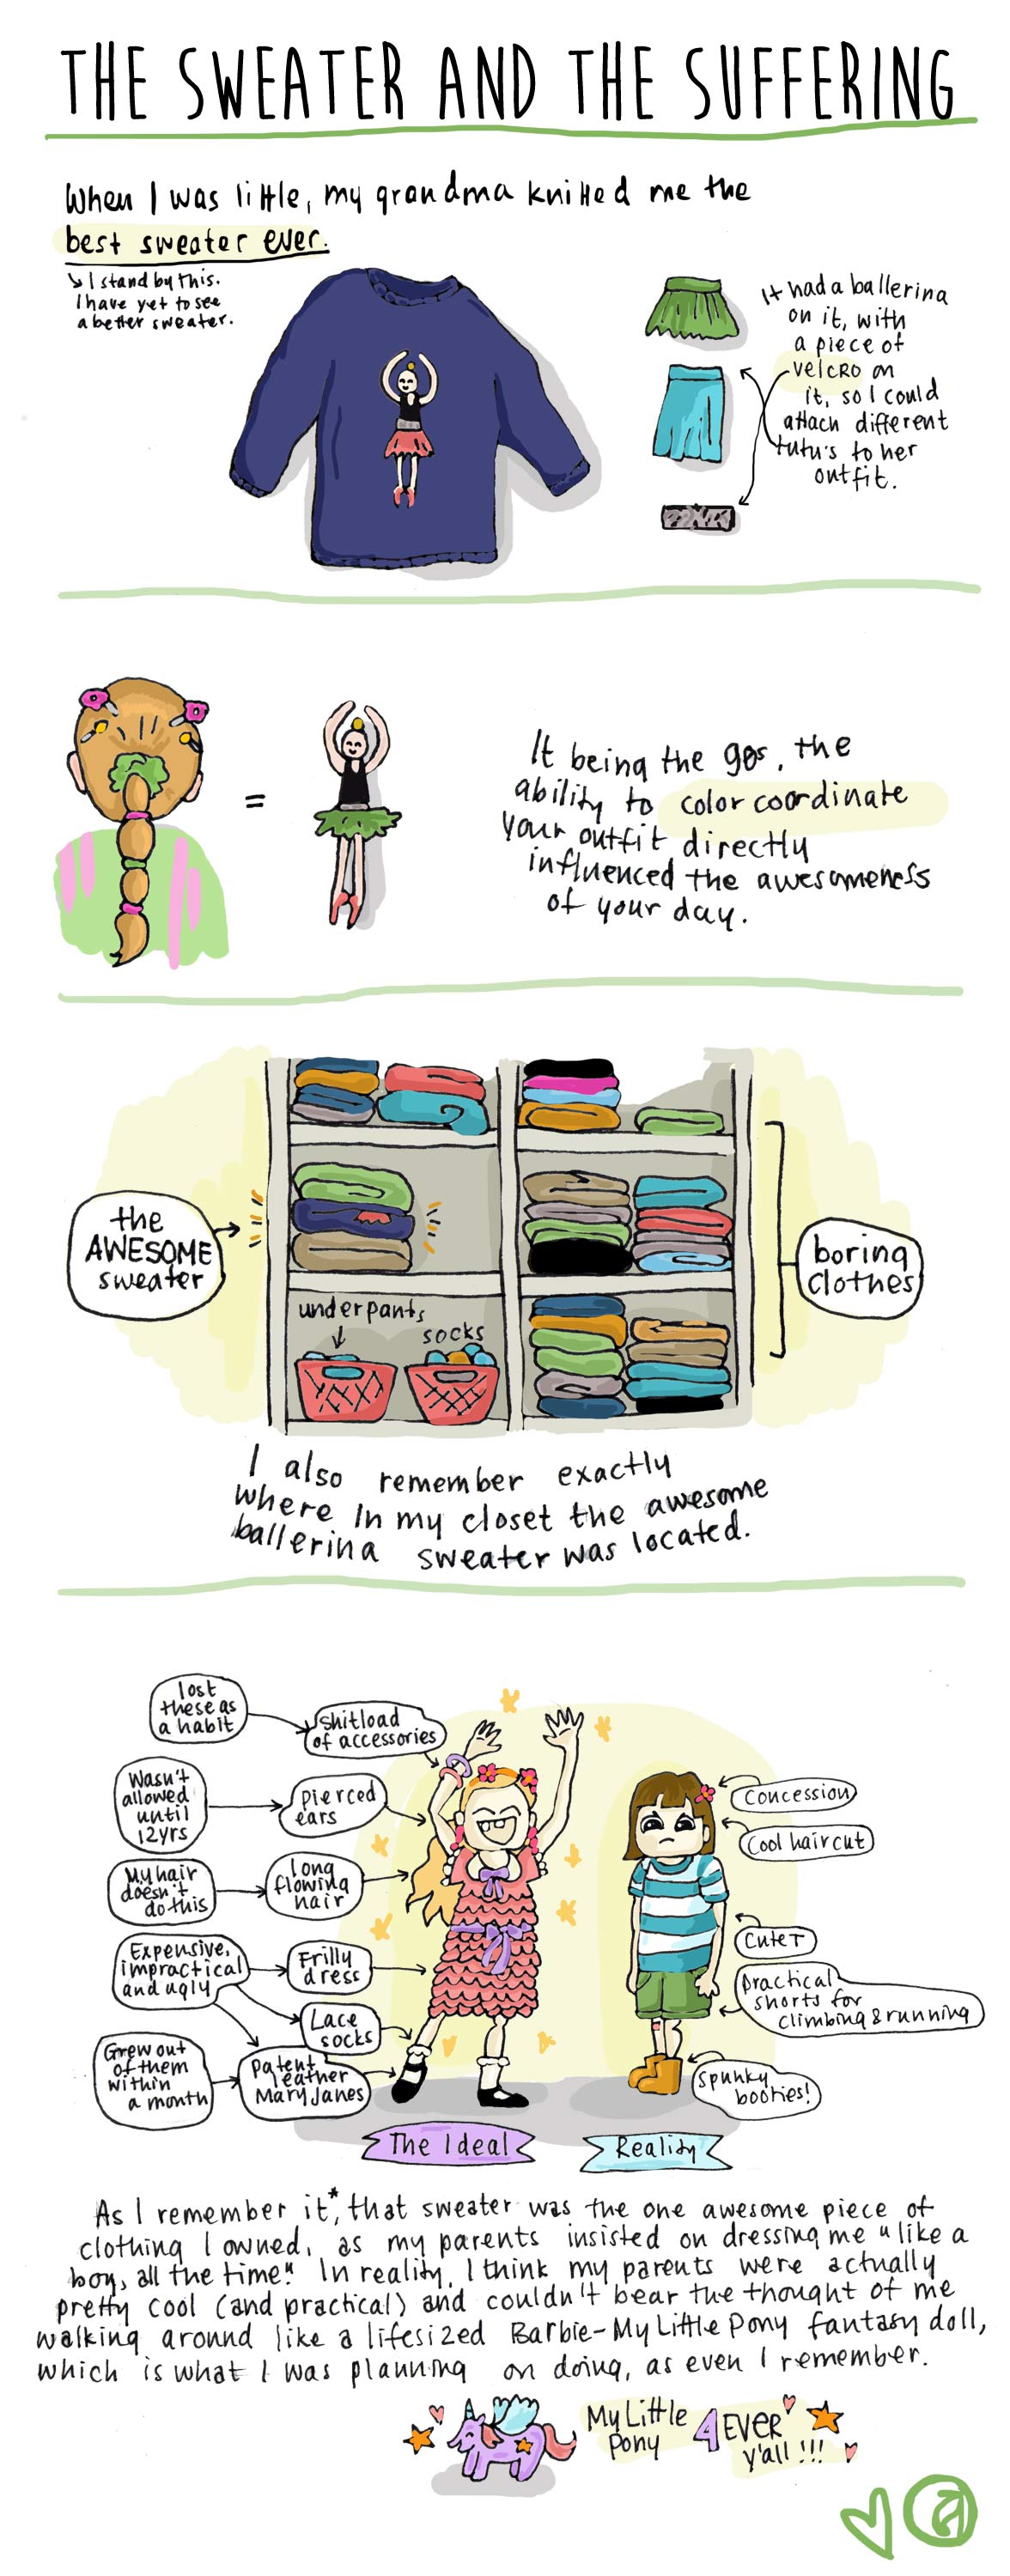 THE SWEATER AND THE SUFFERING
When I was little, my grandma knitted me the
best sweater ever.
↳ I stand by this.
I have yet to see
a better sweater.
It had a ballerina
on it, with
a piece of
velcro on
it, so I could
attach different
tutu's to her
outfit.
=
It being the 90s, the
ability to color coordinate
your outfit directly
influenced the awesomeness
of your day.
the
AWESOME
sweater
underpants
socks
boring
clothes
I also remember exactly
where in my closet the awesome
ballerina sweater was located.
lost
these as
a habit
shitload
of accessories
Wasn't
allowed
until
12yrs
pierced
ears
My hair
doesn't
do this
long
flowing
hair
Expensive,
impractical
and ugly
Frilly
dress
Lace
socks
Grew out
of them
within
a month
Patent
leather
Mary Janes
Concession
Cool haircut
Cute T
practical
shorts for
climbing & running
spunky
booties!
The Ideal
Reality
As I remember it*, that sweater was the one awesome piece of
clothing I owned, as my parents insisted on dressing me "like a
boy, all the time." In reality, I think my parents were actually
pretty cool (and practical) and couldn't bear the thought of me
walking around like a lifesized Barbie-My Little Pony fantasy doll,
which is what I was planning on doing, as even I remember.
My Little
Pony
4EVER
y'all!!!